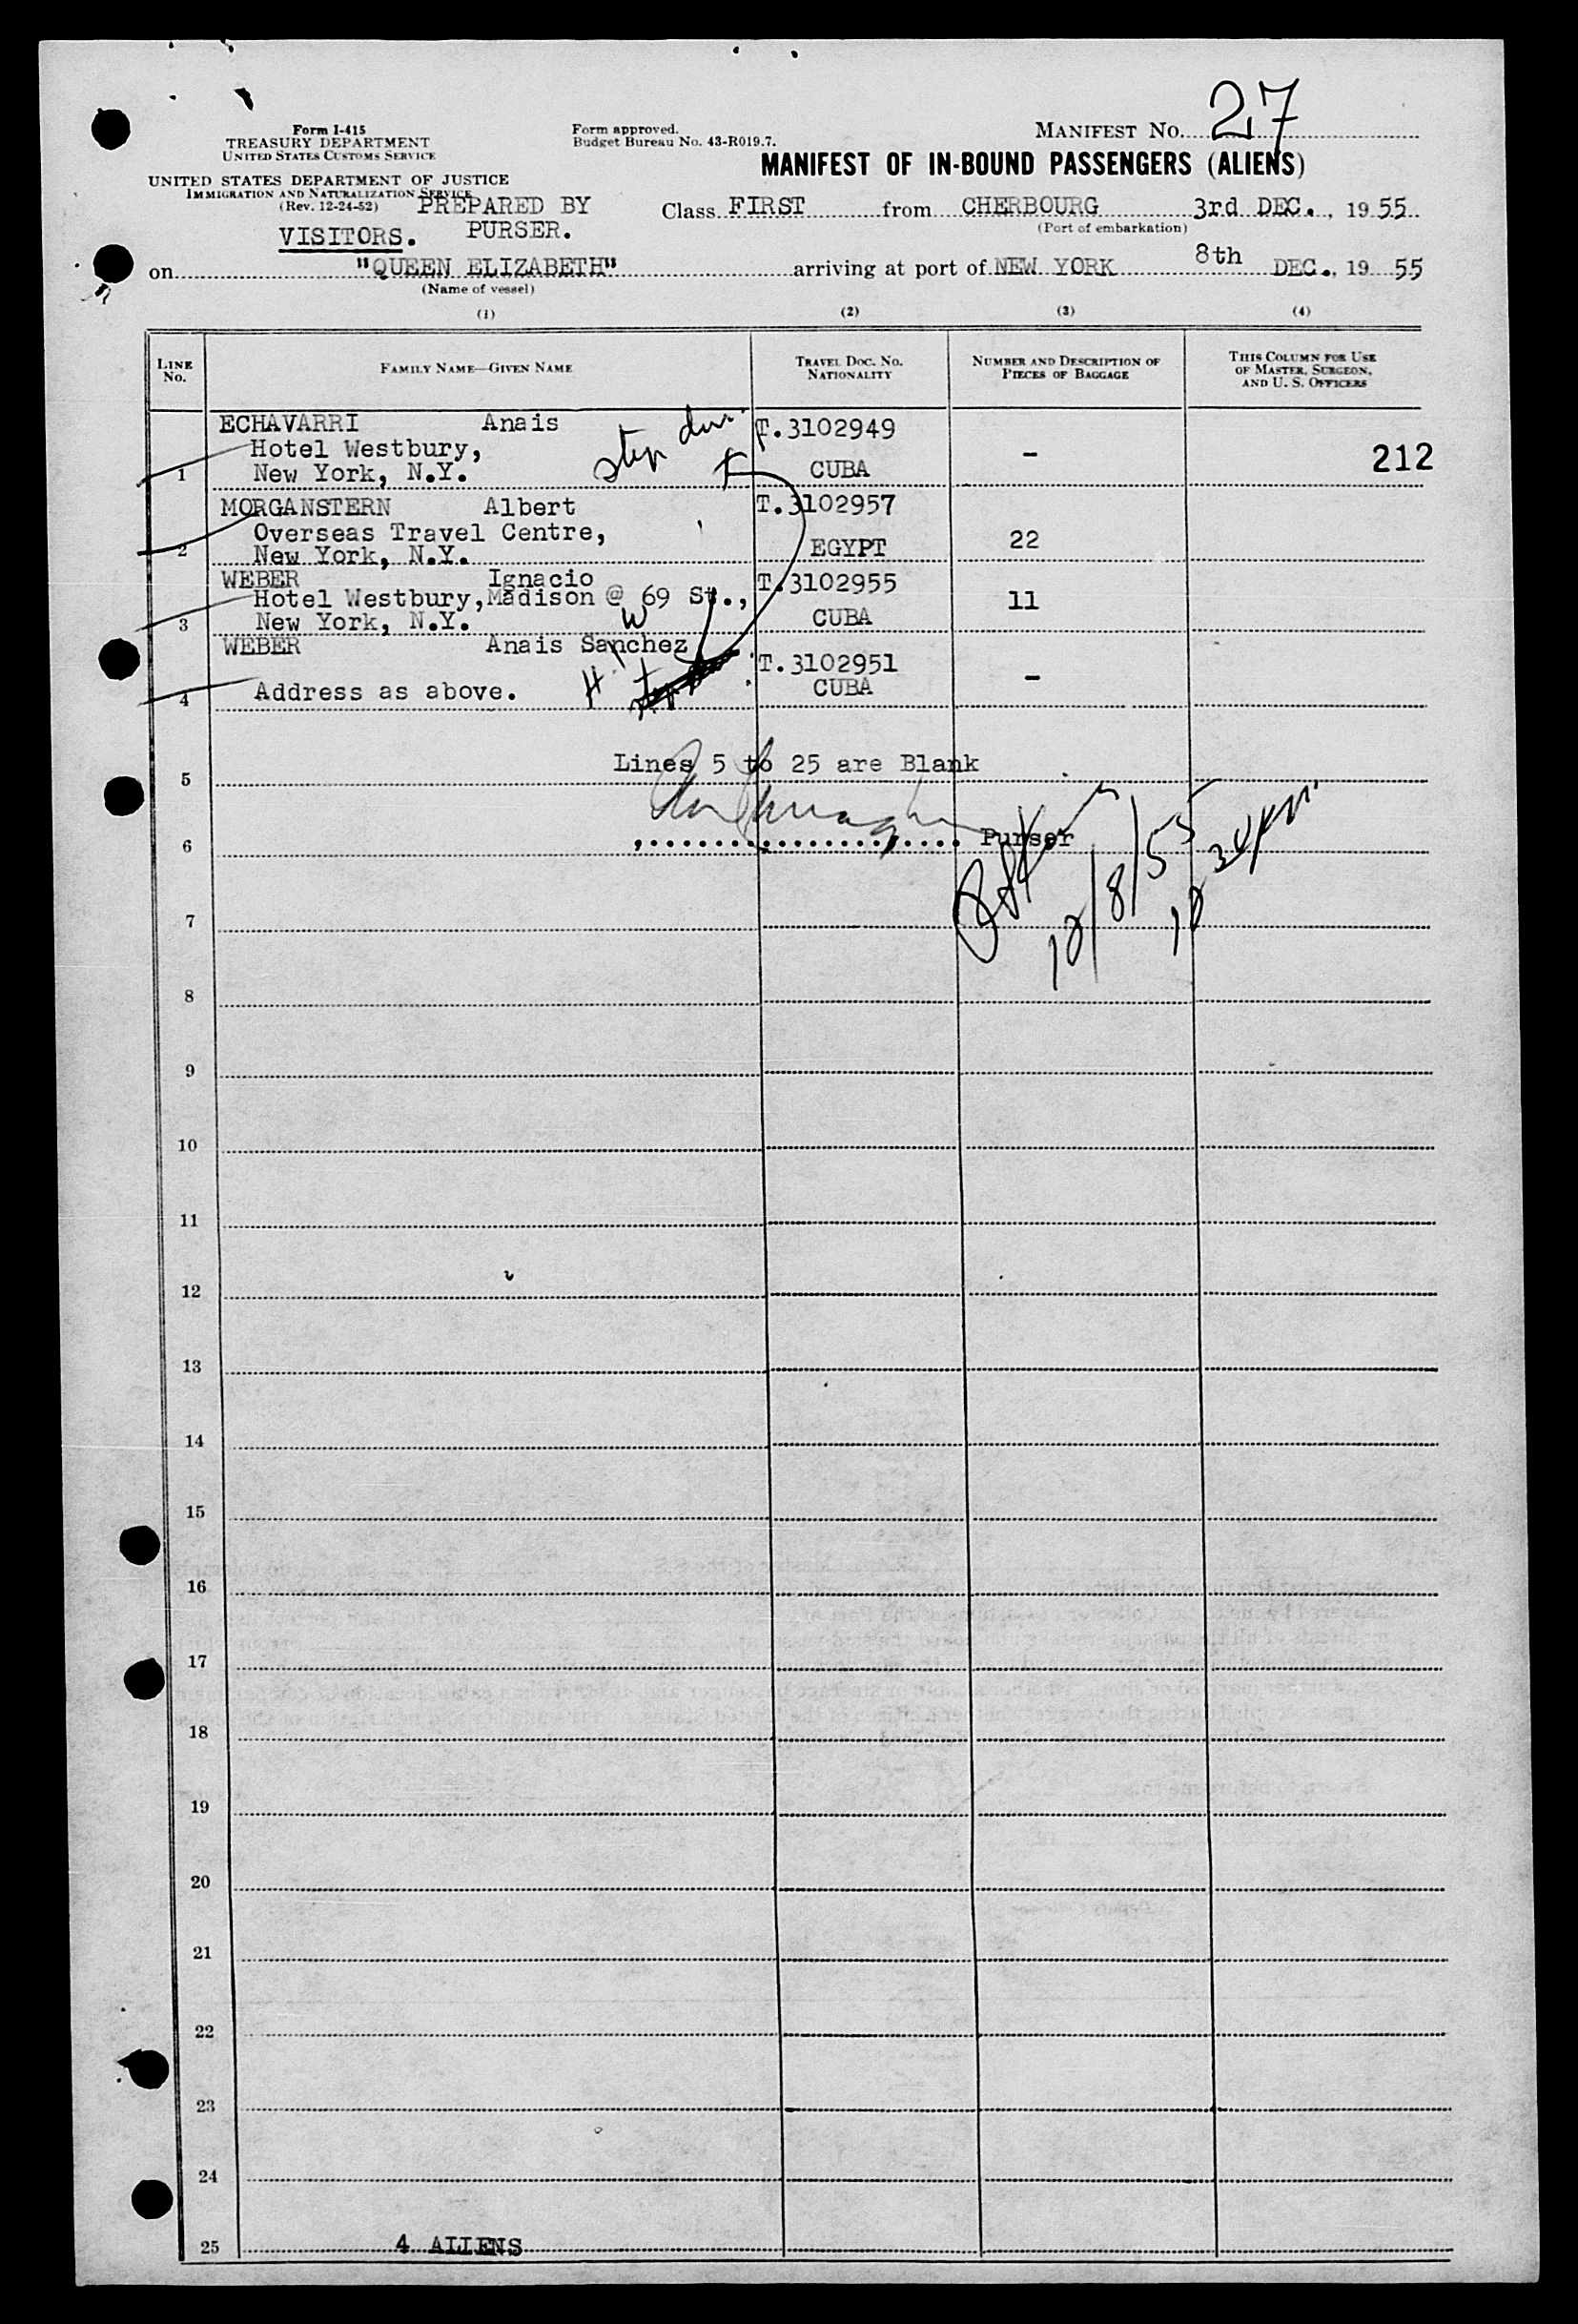 27
Form I-415
TREASURY DEPARTMENT
UNITED STATES CUSTOMS SERVICE
Form approved.
Budget Bureau No. 43-R019.7.
MANIFEST NO.
MANIFEST OF IN-BOUND PASSENGERS (ALIENS)
UNITED STATES DEPARTMENT OF JUSTICE
IMMIGRATION AND NATURALIZATION SERVICE
(Rev. 12-24-52) PREPARED BY
Class FIRST from CHERBOURG 3rd DEC., 1955
(Port of embarkation)
VISITORS. PURSER.
on "QUEEN ELIZABETH" arriving at port of NEW YORK 8th DEC., 19 55
(Name of vessel)
(1) (2) (3) (4)
LINE NO. FAMILY NAME—GIVEN NAME TRAVEL DOC. NO. NATIONALITY NUMBER AND DESCRIPTION OF PIECES OF BAGGAGE THIS COLUMN FOR USE OF MASTER, SURGEON, AND U. S. OFFICERS
ECHAVARRI Anais step T.3102949
Hotel Westbury,
1 New York, N.Y. CUBA - 212
MORGANSTERN Albert T.3102957
Overseas Travel Centre,
2 New York, N.Y. EGYPT 22
WEBER Ignacio T.3102955
Hotel Westbury, Madison @ 69 St.,
3 New York, N.Y. W CUBA 11
WEBER Anais Sanchez T.3102951
4 Address as above. H CUBA -
Lines 5 to 25 are Blank
5
6 Purser
12/8/55
7
8
9
10
11
12
13
14
15
16
17
18
19
20
21
22
23
24
25 4 ALIENS